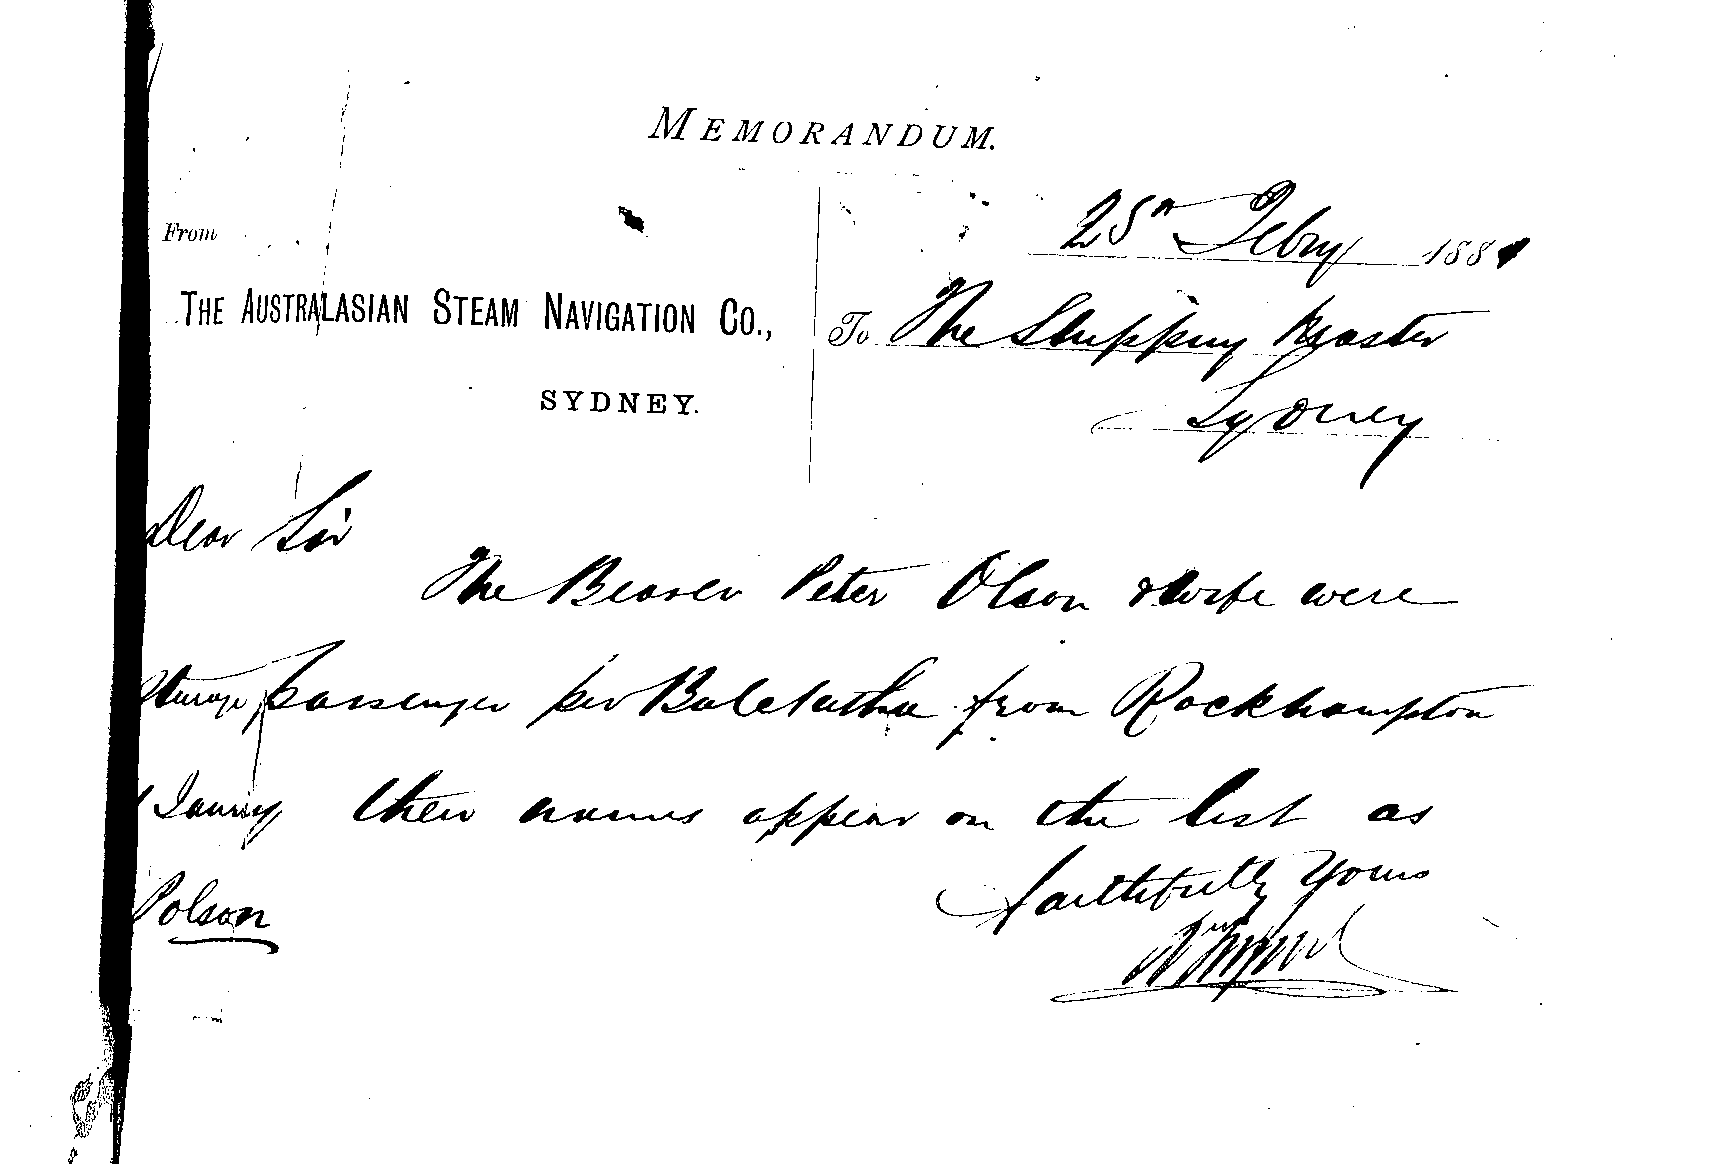 MEMORANDUM.
From
THE AUSTRALASIAN STEAM NAVIGATION CO.,
SYDNEY.
25th Febry 1881
To The Shipping Master
Sydney
Dear Sir
The Bearer Peter Olson & Wife were
Steerage passenger per Balclutha from Rockhampton
their names appear on the list as
Polson
Faithfully Yours